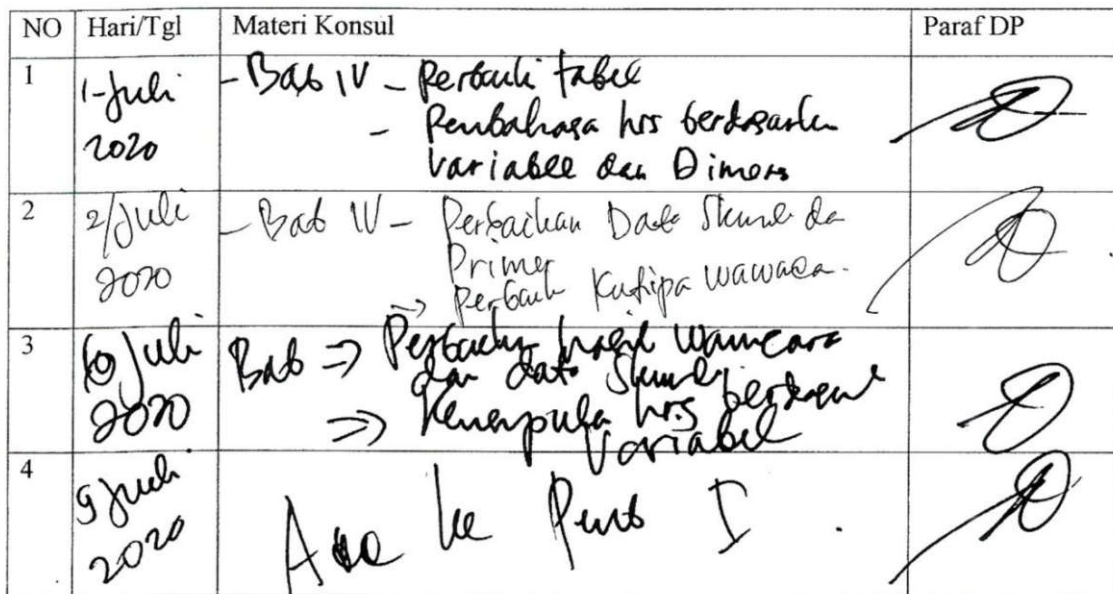 NO Hari/Tgl Materi Konsul Paraf DP
1 1-Juli 2020 - Bab IV - Perbaiki tabel
- Penbahasa hrs berdasarkan
variabel dan Dimens
2 2/Juli 2020 - Bab IV - Perbaikan Data Skund da
Primer
=> Perbaiki Kutipa wawaca.
3 Juli 2020 Bab => Perbaiki hasil wawncara
dan data Skund
=> Kesempula hrs berdasar
Variabel
4 9 Juli 2020 Acc ke Pemb I.